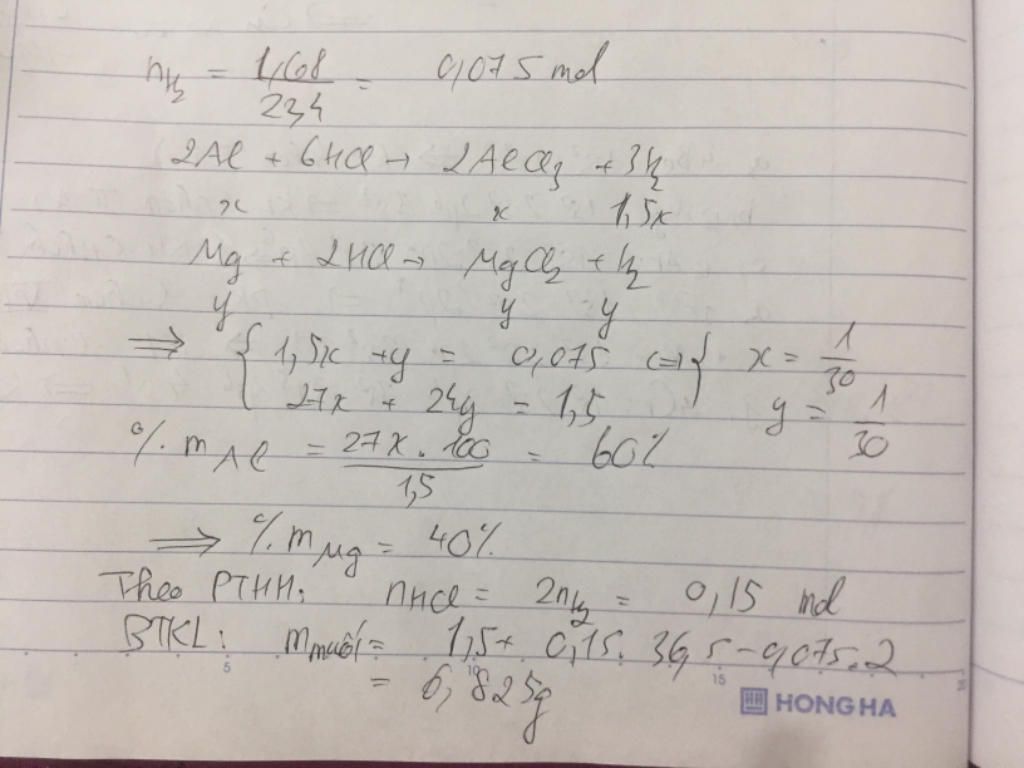 nH2 = 1,68/22,4 = 0,075 mol
2Al + 6HCl → 2AlCl3 + 3H2
x x 1,5x
Mg + 2HCl → MgCl2 + H2
y y y
⇒ { 1,5x + y = 0,075 ⇔ { x = 1/30
27x + 24y = 1,5 y = 1/30
% mAl = 27x.100/1,5 = 60%
⇒ % mMg = 40%
Theo PTHH: nHCl = 2nH2 = 0,15 mol
BTKL: mmuối = 1,5 + 0,15.36,5 - 0,075.2
= 6,825g
5 10 15 20
HONG HA